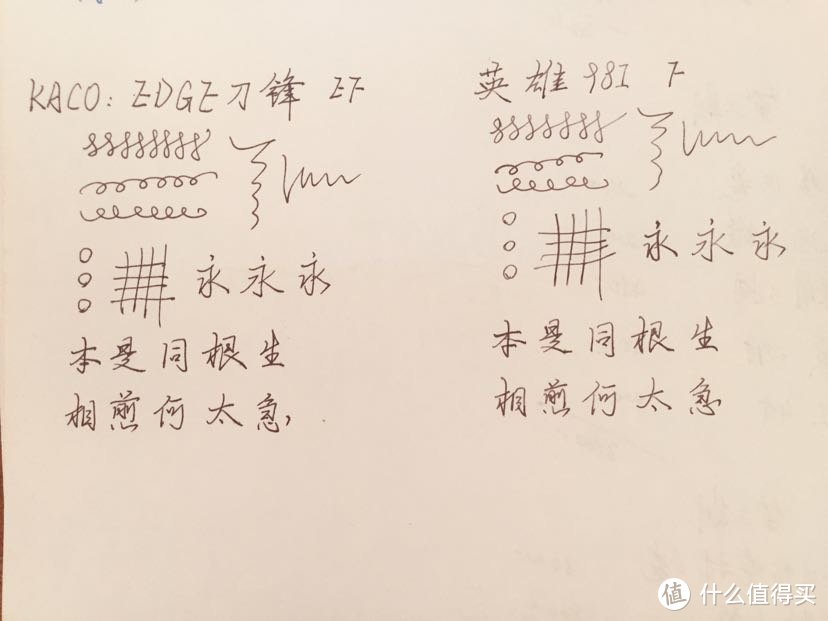 KACO: EDGE刀锋 EF
永永永
本是同根生
相煎何太急,
英雄981 F
永永永
本是同根生
相煎何太急
值 什么值得买